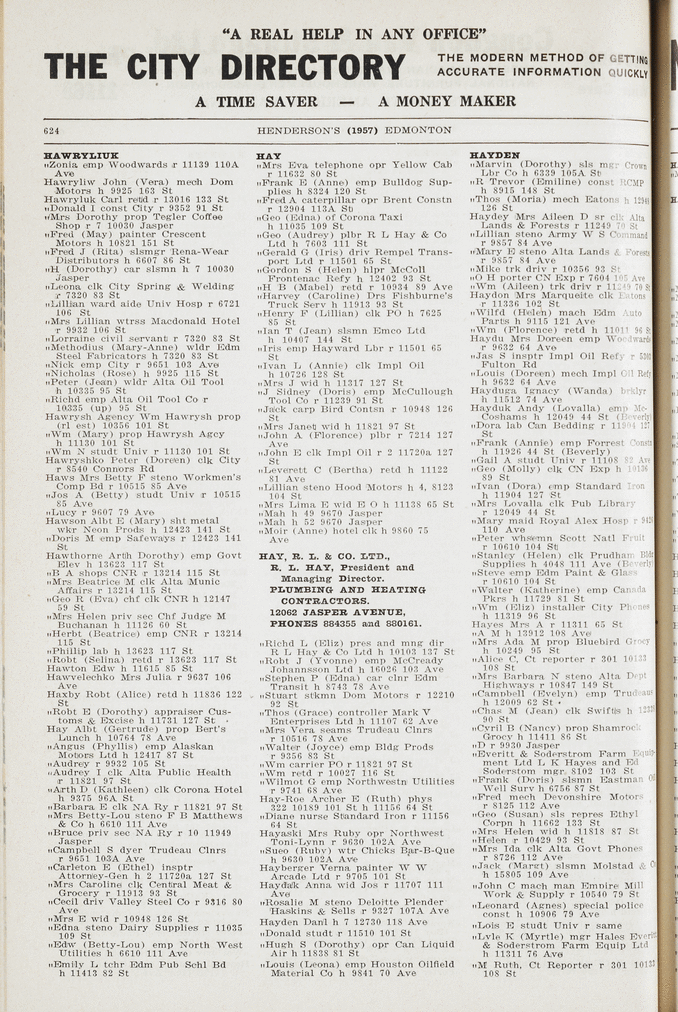 "A REAL HELP IN ANY OFFICE"
THE CITY DIRECTORY
THE MODERN METHOD OF GETTING
ACCURATE INFORMATION QUICKLY
A TIME SAVER — A MONEY MAKER
624
HENDERSON'S (1957) EDMONTON
HAWRYLIUK
"Zonia emp Woodwards r 11139 110A
Ave
Hawryliw John (Vera) mech Dom
Motors h 9925 163 St
Hawryluk Carl retd r 13016 133 St
"Donald I const City r 9352 91 St
"Mrs Dorothy prop Tegler Coffee
Shop r 7 10030 Jasper
"Fred (May) painter Crescent
Motors h 10821 151 St
"Fred J (Rita) slsmgr Rena-Wear
Distributors h 6607 86 St
"H (Dorothy) car slsmn h 7 10030
Jasper
"Leona clk City Spring & Welding
r 7320 83 St
"Lillian ward aide Univ Hosp r 6721
106 St
"Mrs Lillian wtrss Macdonald Hotel
r 9932 106 St
"Lorraine civil servant r 7320 83 St
"Methodius (Mary-Anne) wldr Edm
Steel Fabricators h 7320 83 St
"Nick emp City r 9651 103 Ave
"Nicholas (Rose) h 9925 115 St
"Peter (Jean) wldr Alta Oil Tool
h 10335 95 St
"Richd emp Alta Oil Tool Co r
10335 (up) 95 St
Hawrysh Agency Wm Hawrysh prop
(rl est) 10356 101 St
"Wm (Mary) prop Hawrysh Agcy
h 11130 101 St
"Wm N studt Univ r 11130 101 St
Hawryshko Peter (Doreen) clk City
r 8540 Connors Rd
Haws Mrs Betty F steno Workmen's
Comp Bd r 10515 85 Ave
"Jos A (Betty) studt Univ r 10515
85 Ave
"Lucy r 9607 79 Ave
Hawson Albt E (Mary) sht metal
wkr Neon Prods h 12423 141 St
"Doris M emp Safeways r 12423 141
St
Hawthorne Arth Dorothy) emp Govt
Elev h 13623 117 St
"B A shops CNR r 13214 115 St
"Mrs Beatrice M clk Alta Munic
Affairs r 13214 115 St
"Geo R (Eva) chf clk CNR h 12147
59 St
"Mrs Helen priv sec Chf Judge M
Buchanan h 11126 60 St
"Herbt (Beatrice) emp CNR r 13214
115 St
"Phillip lab h 13623 117 St
"Robt (Selina) retd r 13623 117 St
Hawton Edw h 11615 85 St
Hawvelechko Mrs Julia r 9637 106
Ave
Haxby Robt (Alice) retd h 11836 122
St
"Robt E (Dorothy) appraiser Cus-
toms & Excise h 11731 127 St
Hay Albt (Gertrude) prop Bert's
Lunch h 10764 78 Ave
"Angus (Phyllis) emp Alaskan
Motors Ltd h 12417 87 St
"Audrey r 9932 105 St
"Audrey I clk Alta Public Health
r 11821 97 St
"Arth D (Kathleen) clk Corona Hotel
h 9375 96A St
"Barbara E clk NA Ry r 11821 97 St
"Mrs Betty-Lou steno F B Matthews
& Co h 6610 111 Ave
"Bruce priv sec NA Ry r 10 11949
Jasper
"Campbell S dyer Trudeau Clnrs
r 9651 103A Ave
"Carleton E (Ethel) insptr
Attorney-Gen h 2 11720a 127 St
"Mrs Caroline clk Central Meat &
Grocery r 11913 93 St
"Cecil driv Valley Steel Co r 9316 80
Ave
"Mrs E wid r 10948 126 St
"Edna steno Dairy Supplies r 11035
109 St
"Edw (Betty-Lou) emp North West
Utilities h 6610 111 Ave
"Emily L tchr Edm Pub Schl Bd
h 11413 82 St
HAY
"Mrs Eva telephone opr Yellow Cab
r 11632 80 St
"Frank E (Anne) emp Bulldog Sup-
plies h 8324 120 St
"Fred A caterpillar opr Brent Constn
r 12904 113A St
"Geo (Edna) of Corona Taxi
h 11035 109 St
"Geo (Audrey) plbr R L Hay & Co
Ltd h 7603 111 St
"Gerald G (Iris) driv Rempel Trans-
port Ltd r 11501 65 St
"Gordon S (Helen) hlpr McColl
Frontenac Refy h 12402 93 St
"H B (Mabel) retd r 10934 89 Ave
"Harvey (Caroline) Drs Fishburne's
Truck Serv h 11913 93 St
"Henry F (Lillian) clk PO h 7625
85 St
"Ian T (Jean) slsmn Emco Ltd
h 10407 144 St
"Iris emp Hayward Lbr r 11501 65
St
"Ivan L (Annie) clk Impl Oil
h 10726 128 St
"Mrs J wid h 11317 127 St
"J Sidney (Doris) emp McCullough
Tool Co r 11239 91 St
"Jack carp Bird Contsn r 10948 126
St
"Mrs Janet wid h 11821 97 St
"John A (Florence) plbr r 7214 127
Ave
"John E clk Impl Oil r 2 11720a 127
St
"Leverett C (Bertha) retd h 11122
81 Ave
"Lillian steno Hood Motors h 4, 8123
104 St
"Mrs Lima E wid E O h 11138 65 St
"Mah h 49 9670 Jasper
"Mah h 52 9670 Jasper
"Moir (Anne) hotel clk h 9860 75
Ave
HAY, R. L. & CO. LTD.,
R. L. HAY, President and
Managing Director.
PLUMBING AND HEATING
CONTRACTORS.
12062 JASPER AVENUE,
PHONES 884355 and 880161.
"Richd L (Eliz) pres and mng dir
R L Hay & Co Ltd h 10103 137 St
"Robt J (Yvonne) emp McCready
Johannson Ltd h 16026 103 Ave
"Stephen P (Edna) car clnr Edm
Transit h 8743 78 Ave
"Stuart stkmn Dom Motors r 12210
92 St
"Thos (Grace) controller Mark V
Enterprises Ltd h 11107 62 Ave
"Mrs Vera seams Trudeau Clnrs
r 10516 78 Ave
"Walter (Joyce) emp Bldg Prods
r 9356 83 St
"Wm carrier PO r 11821 97 St
"Wm retd r 10027 116 St
"Wilmot G emp Northwestn Utilities
r 9741 68 Ave
Hay-Roe Archer E (Ruth) phys
322 10189 101 St h 11156 64 St
"Diane nurse Standard Iron r 11156
64 St
Hayaski Mrs Ruby opr Northwest
Toni-Lynn r 9630 102A Ave
"Sueo (Ruby) wtr Chicks Bar-B-Que
h 9630 102A Ave
Hayberger Verna painter W W
Arcade Ltd r 9705 101 St
Haydak Anna wid Jos r 11707 111
Ave
"Rosalie M steno Deloitte Plender
Haskins & Sells r 9327 107A Ave
Hayden Danl h 7 12730 118 Ave
"Donald studt r 11510 101 St
"Hugh S (Dorothy) opr Can Liquid
Air h 11838 81 St
"Louis (Leona) emp Houston Oilfield
Material Co h 9841 70 Ave
HAYDEN
"Marvin (Dorothy) sls mgr Crown
Lbr Co h 6339 105A St
"R Trevor (Emiline) const RCMP
h 8915 148 St
"Thos (Moria) mech Eatons h
126 St
Haydey Mrs Aileen D sr clk Alta
Lands & Forests r 11249 70 St
"Lillian steno Army W S Command
r 9857 84 Ave
"Mary E steno Alta Lands & Forests
r 9857 84 Ave
"Mike trk driv r 10356 93 St
"O H porter CN Exp r 7604 105 Ave
"Wm (Aileen) trk driv r 11249 70 St
Haydon Mrs Marqueite clk Eatons
r 11336 102 St
"Wilfd (Helen) mach Edm Auto
Parts h 9115 121 Ave
"Wm (Florence) retd h 11011 96 St
Haydu Mrs Doreen emp Woodwards
r 9632 64 Ave
"Jas S insptr Impl Oil Refy r
Fulton Rd
"Louis (Doreen) mech Impl Oil Refy
h 9632 64 Ave
Hayduga Ignacy (Wanda) beklyr
h 11512 74 Ave
Hayduk Andy (Lovalla) emp Mc-
Coshams h 12049 44 St (Beverly)
"Dora lab Can Bedding r 11904 127
St
"Frank (Annie) emp Forrest Constn
h 11926 44 St (Beverly)
"Gail A studt Univ r 11108 82 Ave
"Geo (Molly) clk CN Exp h 10136
89 St
"Ivan (Dora) emp Standard Iron
h 11904 127 St
"Mrs Lovalla clk Pub Library
r 12049 44 St
"Mary maid Royal Alex Hosp r
110 Ave
"Peter whsemn Scott Natl Fruit
r 10610 104 St
"Stanley (Helen) clk Prudham Bldg
Supplies h 4048 111 Ave (Beverly)
"Steve emp Edm Paint & Glass
r 10610 104 St
"Walter (Katherine) emp Canada
Pkrs h 11729 81 St
"Wm (Eliz) installer City Phones
h 11319 96 St
Hayes Mrs A r 11311 65 St
"A M h 13912 108 Ave
"Mrs Ada M prop Bluebird Grocy
h 10249 95 St
"Alice C, Ct reporter r 301 10133
108 St
"Mrs Barbara N steno Alta Dept
Highways r 10847 149 St
"Campbell (Evelyn) emp Trudeaus
h 12009 62 St
"Chas M (Jean) clk Swifts h
90 St
"Cyril B (Nancy) prop Shamrock
Grocy h 11411 86 St
"D r 9930 Jasper
"Everitt & Soderstrom Farm Equip-
ment Ltd L K Hayes and Ed
Soderstom mgr. 8102 103 St
"Frank (Doris) slsmn Eastman Oil
Well Surv h 6756 87 St
"Fred mech Devonshire Motors
r 8125 112 Ave
"Geo (Susan) sls repres Ethyl
Corpn h 11662 133 St
"Mrs Helen wid h 11818 87 St
"Helen r 10429 93 St
"Mrs Ida clk Alta Govt Phones
r 8726 112 Ave
"Jack (Margt) slsmn Molstad & Co
h 15805 109 Ave
"John C mach man Emnire Mill
Work & Supply r 10540 79 St
"Leonard (Agnes) special police
const h 10906 79 Ave
"Lois E studt Univ r same
"Lvle K (Myrtle) mgr Hales Everitt
& Soderstrom Farm Equip Ltd
h 11311 76 Ave
"M Ruth, Ct Reporter r 301 10133
108 St